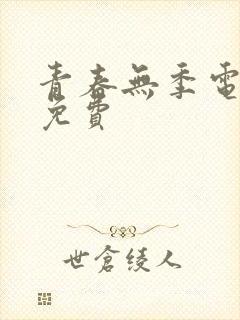 青春無季電
免費
世倉綾人